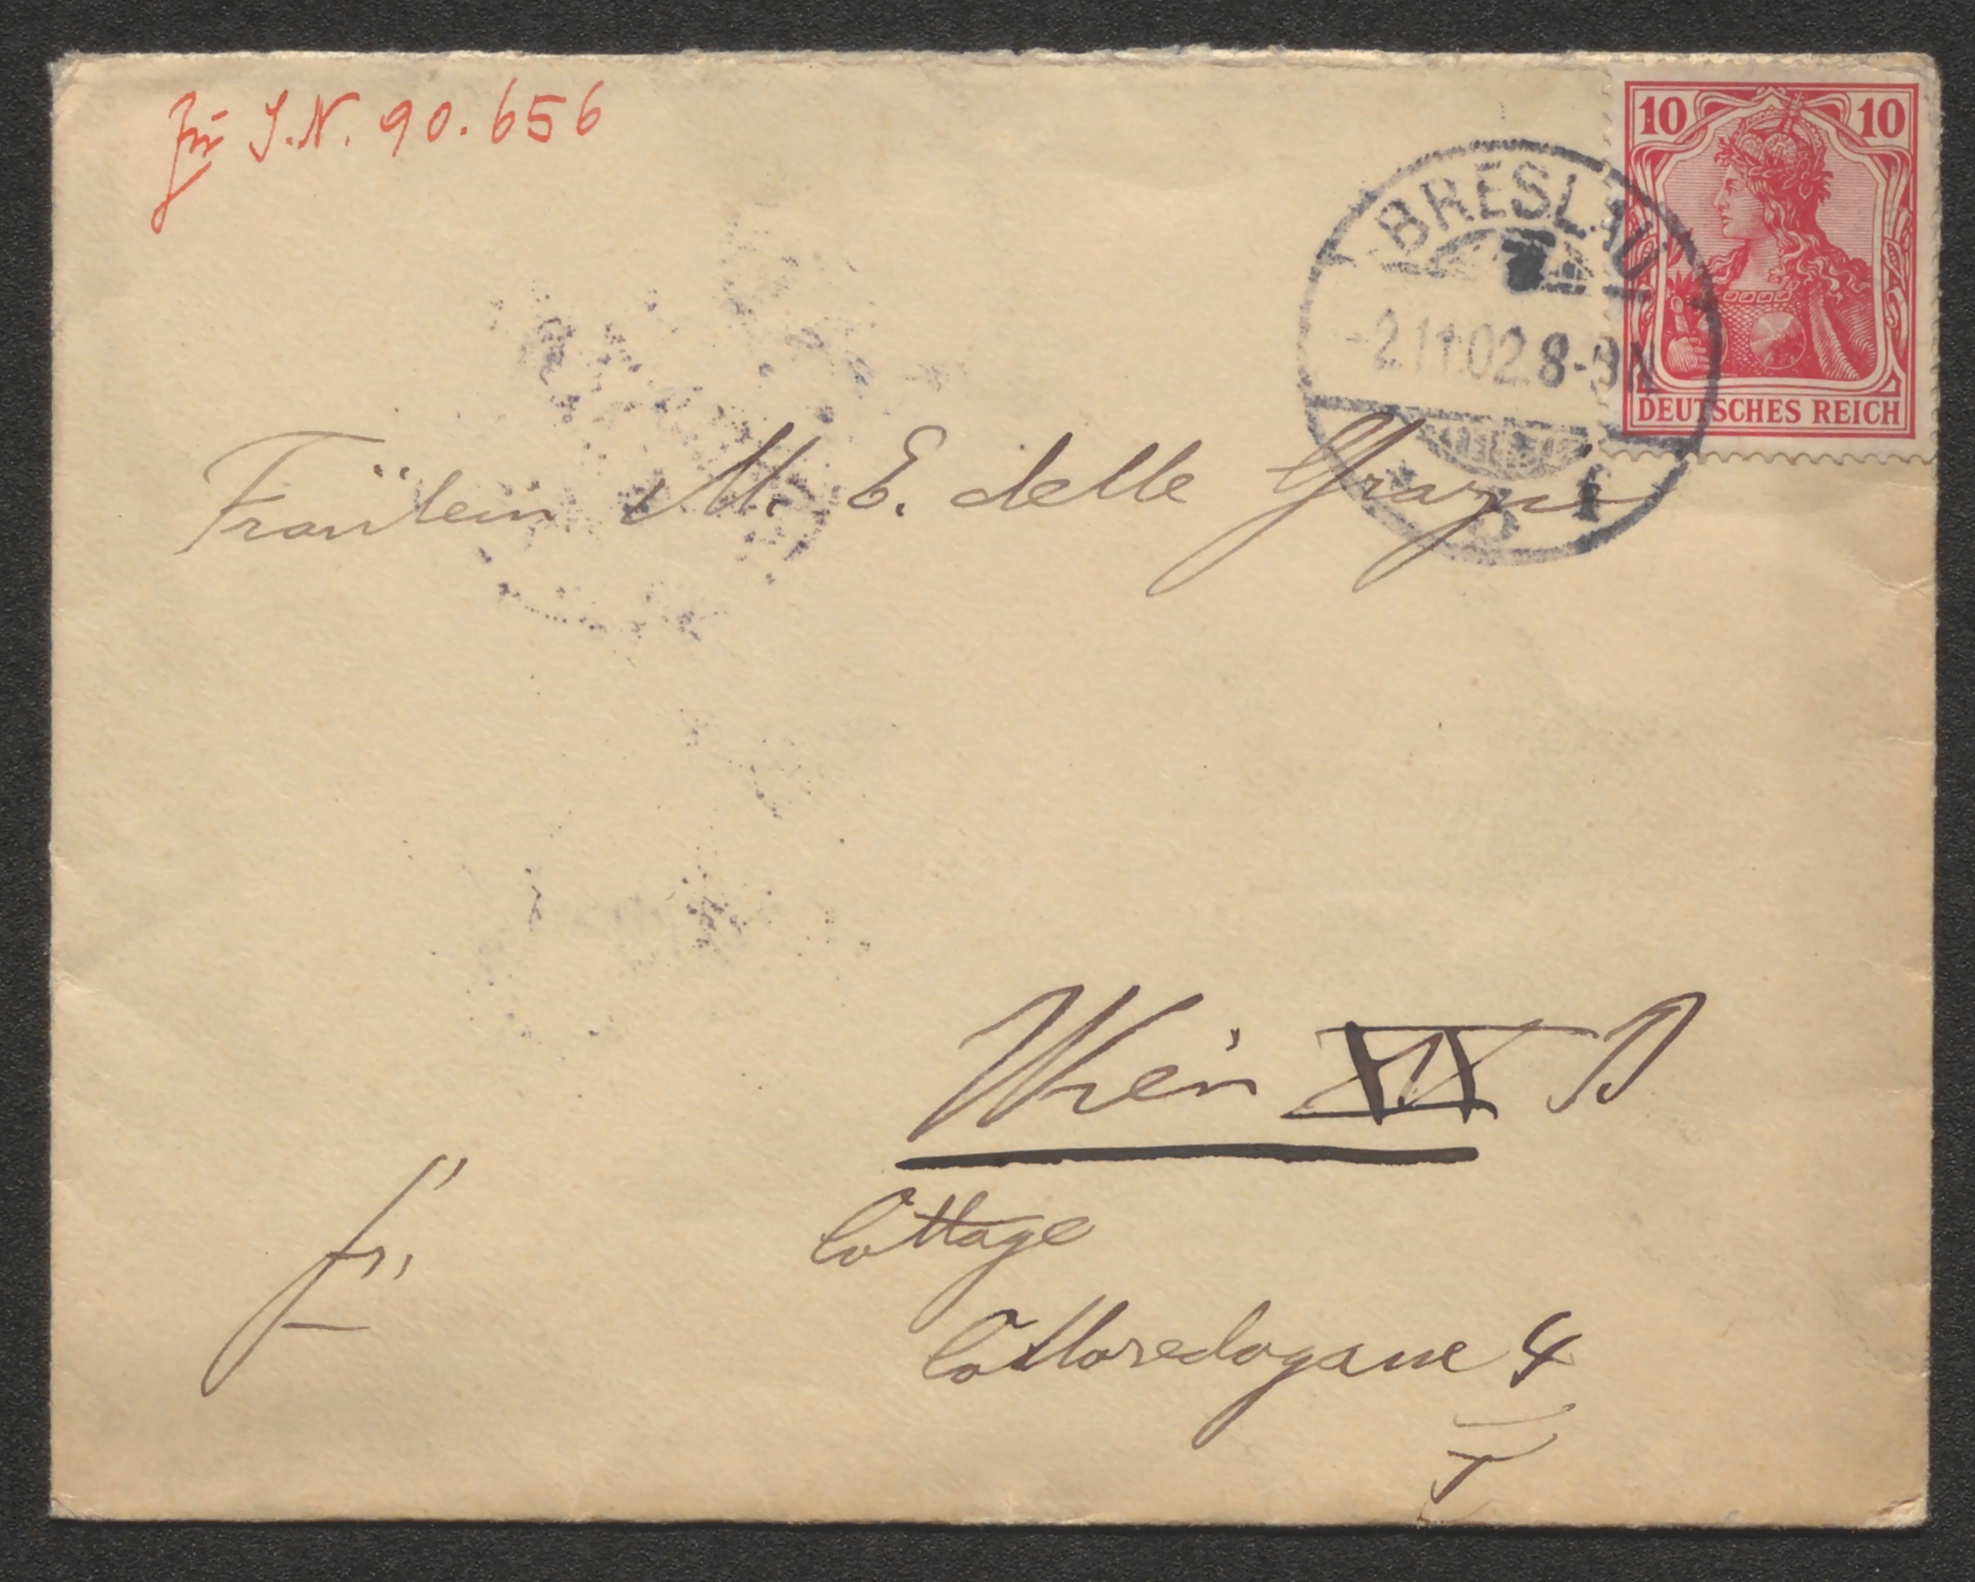 zu I.N. 90.656
10 10
DEUTSCHES REICH
BRESLAU
-2.11.02.8-9N
1
Fräulein M. E. delle Grazie
Wien
Cottage
fr.
4